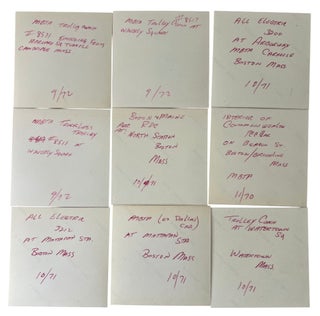 MBTA Trolley Coach
# 8571 Entering From
Harvard Sq Tunnell
Cambridge Mass
9/72
MBTA Trolley Coach at
# 8517
Waverly Square
9/72
All Electric
at Arborway
MBTA Carhouse
Boston Mass
10/71
MBTA Trackless
Trolley
# 8511 at
Waverly Square
9/72
Boston & Maine
RDC
at North Station
Boston
Mass
10/71
Interior of
Commonwealth
on Beacon St.
Boston/Brookline
Mass
MBTA
11/70
All Electric
3212
at Mattapan Sta
Boston Mass
10/71
MBTA (ex Dallas)
Car
at Mattapan
Sta
Boston Mass
10/71
Trolley Coach
at Watertown
Sq
Watertown
Mass
10/71